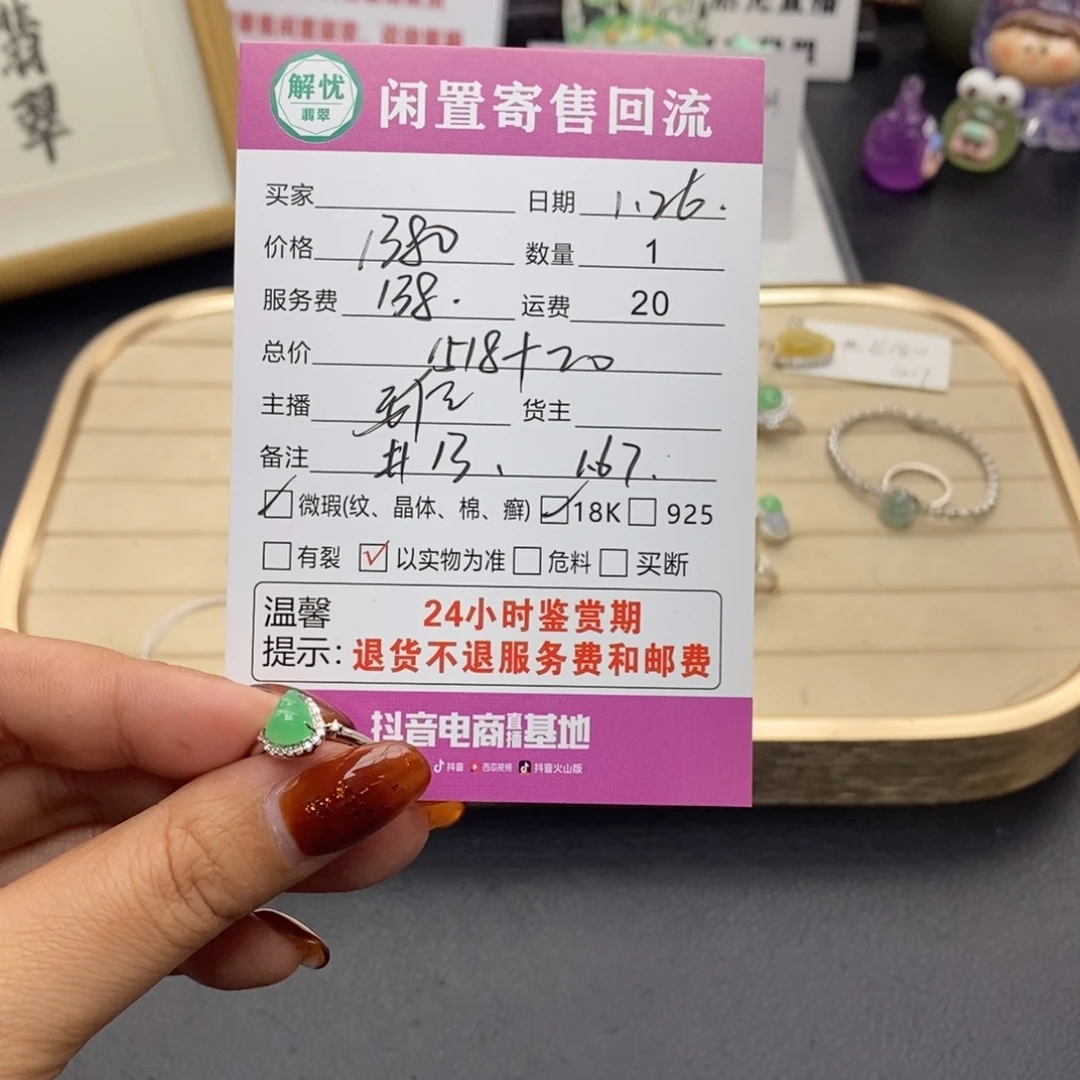 翡翠
解忧
翡翠
闲置寄售回流
买家 日期 1.26.
价格 1380 数量 1
服务费 138. 运费 20
总价 1518+20
主播 货主
备注 #13、 1.67.
微瑕(纹、晶体、棉、癣) 18K 925
有裂 以实物为准 危料 买断
温馨 24小时鉴赏期
提示: 退货不退服务费和邮费
抖音电商直播基地
抖音 西瓜视频 抖音火山版